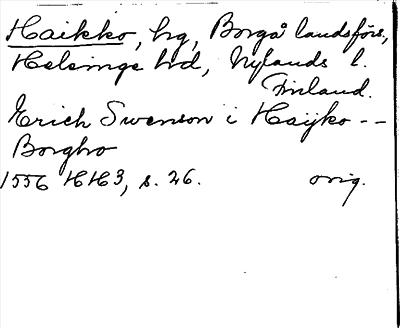 Haikko, hg, Borgå landsförs.,
Helsinge hd, Nylands l.
Finland.
Erich Swenson i Haijko --
Borgho
1556 HH3, s. 26. orig.